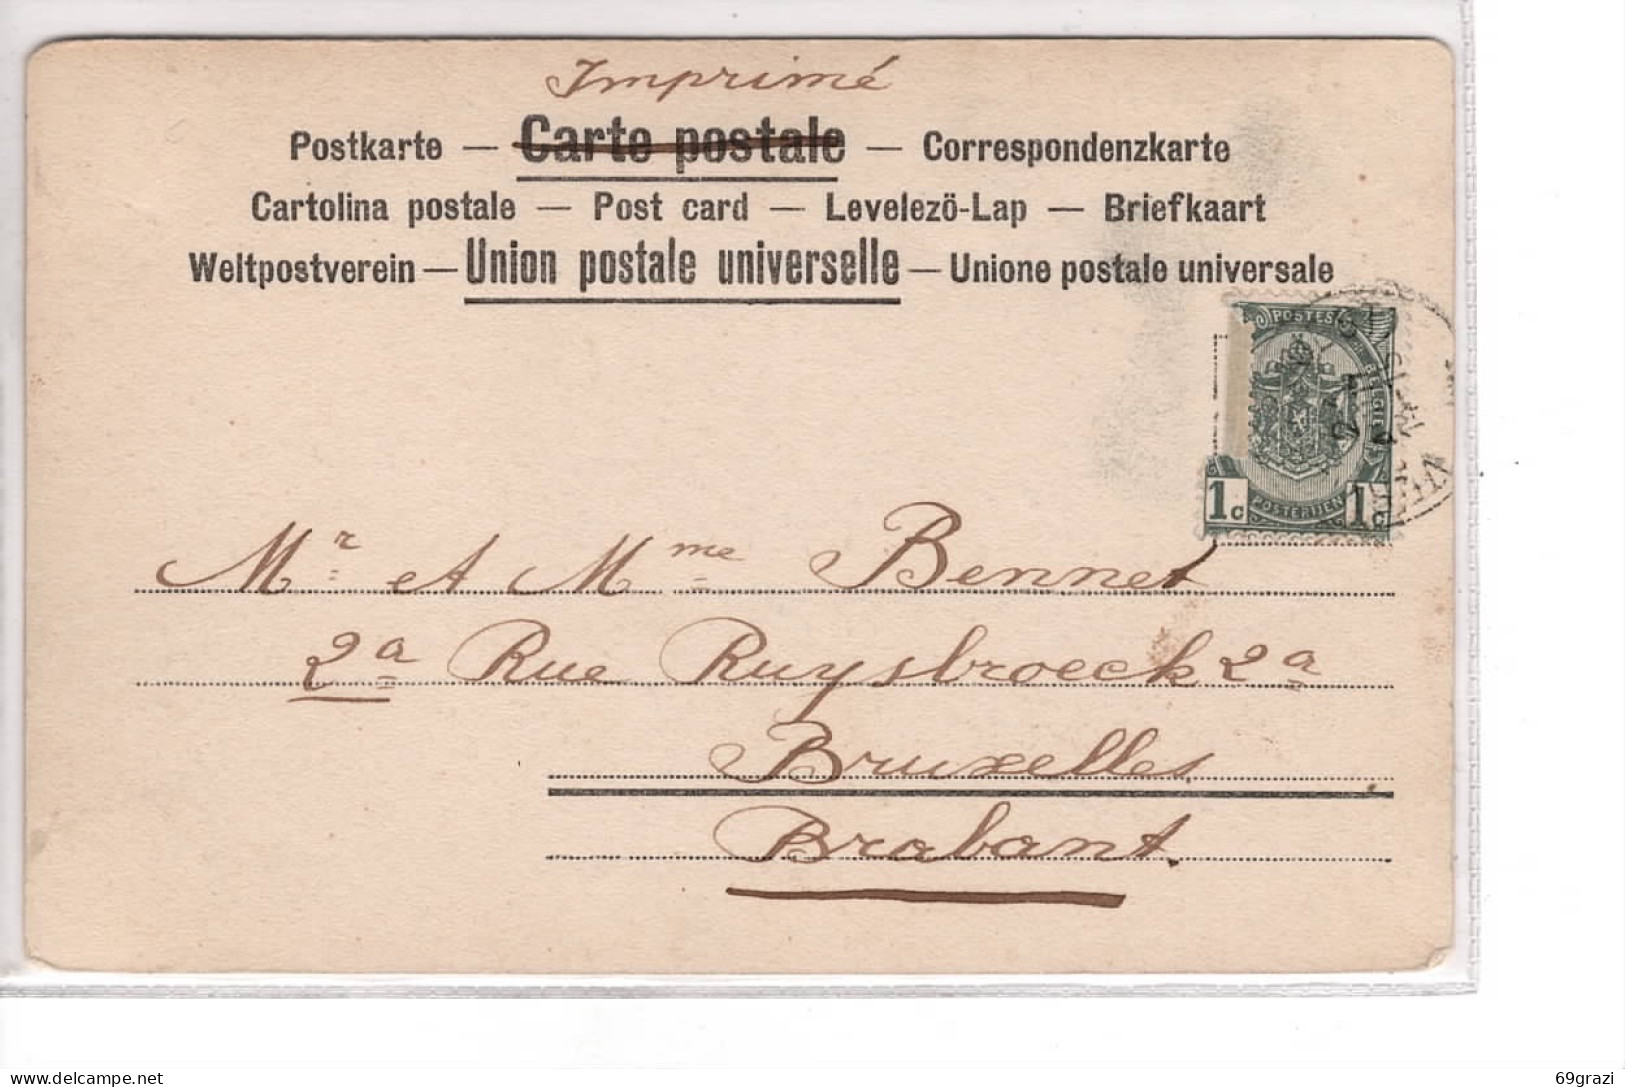 Imprimé
Postkarte — Carte postale — Correspondenzkarte
Cartolina postale — Post card — Levelezö-Lap — Briefkaart
Weltpostverein — Union postale universelle — Unione postale universale
POSTES
BELGIE
POSTERIJEN
1c 1c
Mr et Mme Bennet
2a Rue Ruysbroeck 2a
Bruxelles
Brabant.
www.delcampe.net
69grazi